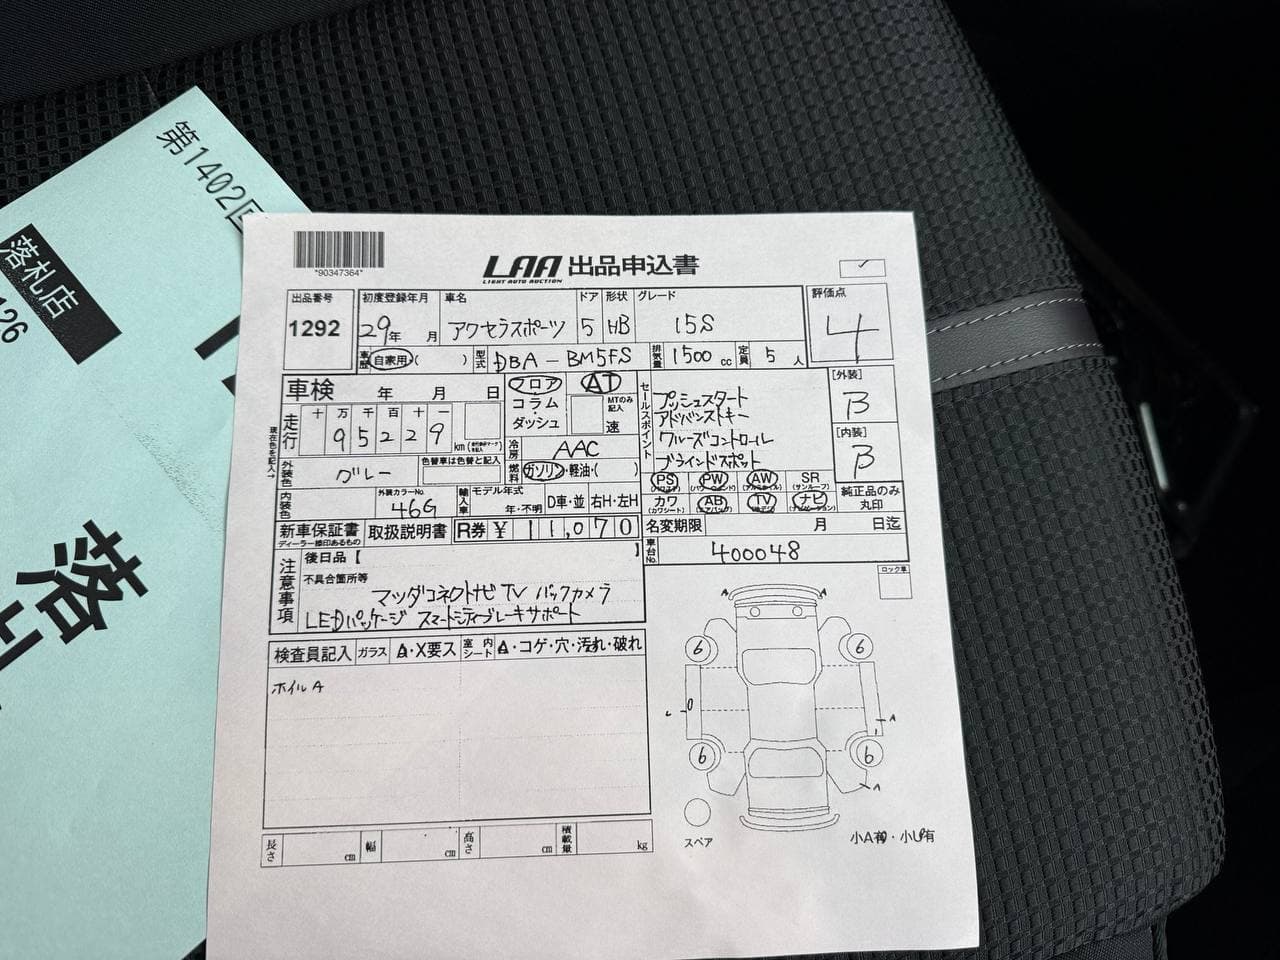 第1402回
落札店
126
落
*90347364*
LAA 出品申込書
LIGHT AUTO AUCTION
✓
出品番号
1292
初度登録年月
29年 月
車名
アクセラスポーツ
ドア
5
形状
HB
グレード
15S
評価点
4
車歴 自家用・( )
型式 DBA-BM5FS
排気量 1500 cc
定員 5 人
車検 年 月 日
フロア
コラム
ダッシュ
AT
MTのみ記入
速
セールスポイント
プッシュスタート
アドバンストキー
クルーズコントロール
ブラインドスポット
[外装]
B
[内装]
B
走行
十 万 千 百 十 一
9 5 2 2 9
km
現在色を記入→
冷房 AAC
燃料 ガソリン・軽油・( )
外装色 グレー
色替車は色替と記入
PS PW AW SR
(サンルーフ)
カワ AB TV ナビ
(カワシート)
純正品のみ
丸印
内装色
外装カラーNo.
46G
輸入車
モデル年式
年・不明
D車・並
右H・左H
新車保証書
ディーラー捺印あるもの
取扱説明書
R券 ¥ 11,070
名変期限 月 日迄
車台No. 400048
注意事項
後日品【 】
不具合箇所等
マツダコネクトナビ TV バックカメラ
LEDパッケージ スマートシティブレーキサポート
ロック車
検査員記入
ガラス
A・X要ス
室内シート
A・コゲ・穴・汚れ・破れ
ホイルA
A A
6 6
A
6 6
A
スペア
小A有・小U有
長さ cm
幅 cm
高さ cm
積載量 kg